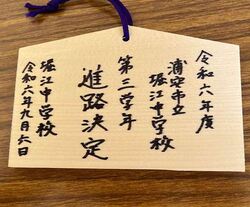 令和六年度
浦安市立
堀江中学校
第三学年
進路決定
堀江中学校
令和六年九月六日